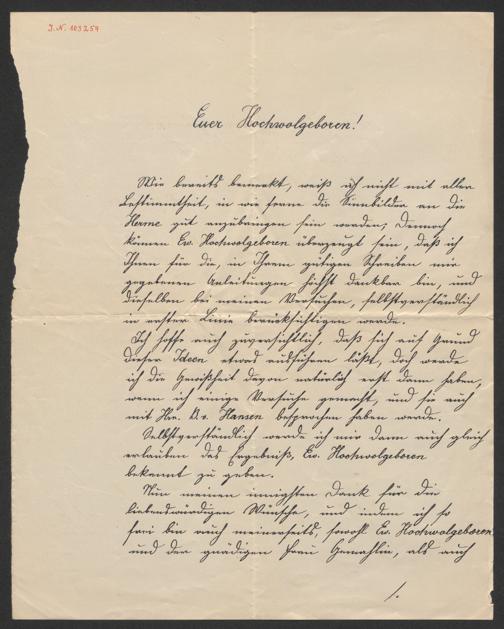 J.N. 103254
Euer Hochwolgeboren!
Wie bereits bemerkt, weiß ich nicht mit aller
Bestimmtheit, in wie ferne die Sinnbilder an die
Herme gut anzubringen sein werden; dennoch
können Ew. Hochwolgeboren überzeugt sein, daß ich
Ihnen für die, in Ihrem gütigen Schreiben mir
gegebenen Anleitungen höchst dankbar bin, und
dieselben bei meinen Versuchen, selbstverständlich
in erster Linie berücksichtigen werde.
Ich hoffe auch zuversichtlich, daß sich auf Grund
dieser Ideen etwas ausführen läßt, doch werde
ich die Gewißheit davon natürlich erst dann haben,
wenn ich einige Versuche gemacht, und sie auch
mit Hrn. B. v. Hansen besprochen haben werde.
Selbstverständlich werde ich mir dann auch gleich
erlauben das Ergebniß, Ew. Hochwolgeboren
bekannt zu geben.
Nun meinen innigsten Dank für die
liebenswürdigen Wünsche, und indem ich so
frei bin auch meinerseits, sowohl Ew. Hochwolgeboren
und der gnädigen Frau Gemahlin, als auch
/.